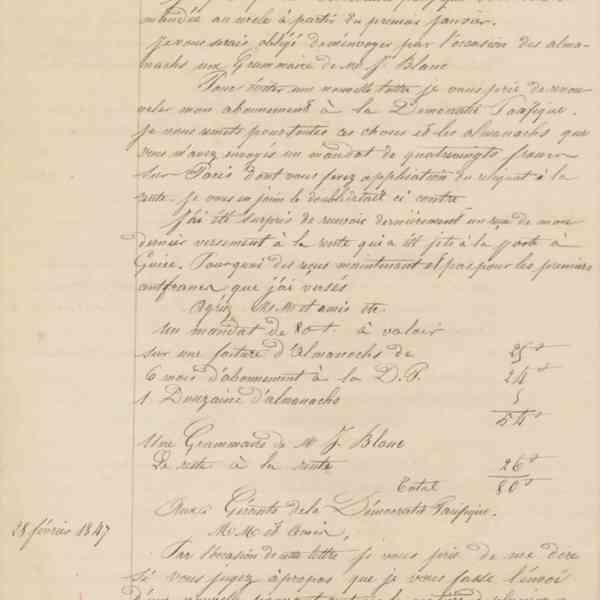 mandée au siècle à partir du premier Janvier.
Je vous serais obligé de m'envoyer par l'occasion des alma-
nachs une Grammaire de Mr J. Blanc
Pour éviter une nouvelle lettre je vous prie de renou-
veler mon abonnement à la Démocratie Pacifique.
Je vous remets pour toutes ces choses et les almanachs que
vous m'avez envoyés un mandat de quatrevingts francs
sur Paris dont vous ferez application du reliquat à la
rente. Je vous en joins le double détail ci contre
J'ai été surpris de recevoir dernièrement un reçu de mon
dernier versement à la rente qui a été jeté à la poste à
Guise. Pourquoi des reçus maintenant et pas pour les premiers
cent francs que j'ai versés
Agréez Ms Mrs et amis etc.
Un mandat de 80 f. à valoir
sur une facture d'Almanachs de 25 f
6 mois d'abonnement à la D.P. 24 f
1 Douzaine d'almanachs 5
54 f
Une Grammaire de Mr J. Blanc
Le reste à la rente 26 f
Total 80 f
Aux Gérants de la Démocratie Pacifique.
28 février 1847
Ms Mrs et amis,
Par l'occasion de cette lettre je vous prie de me dire
si vous jugez à propos que je vous fasse l'envoi